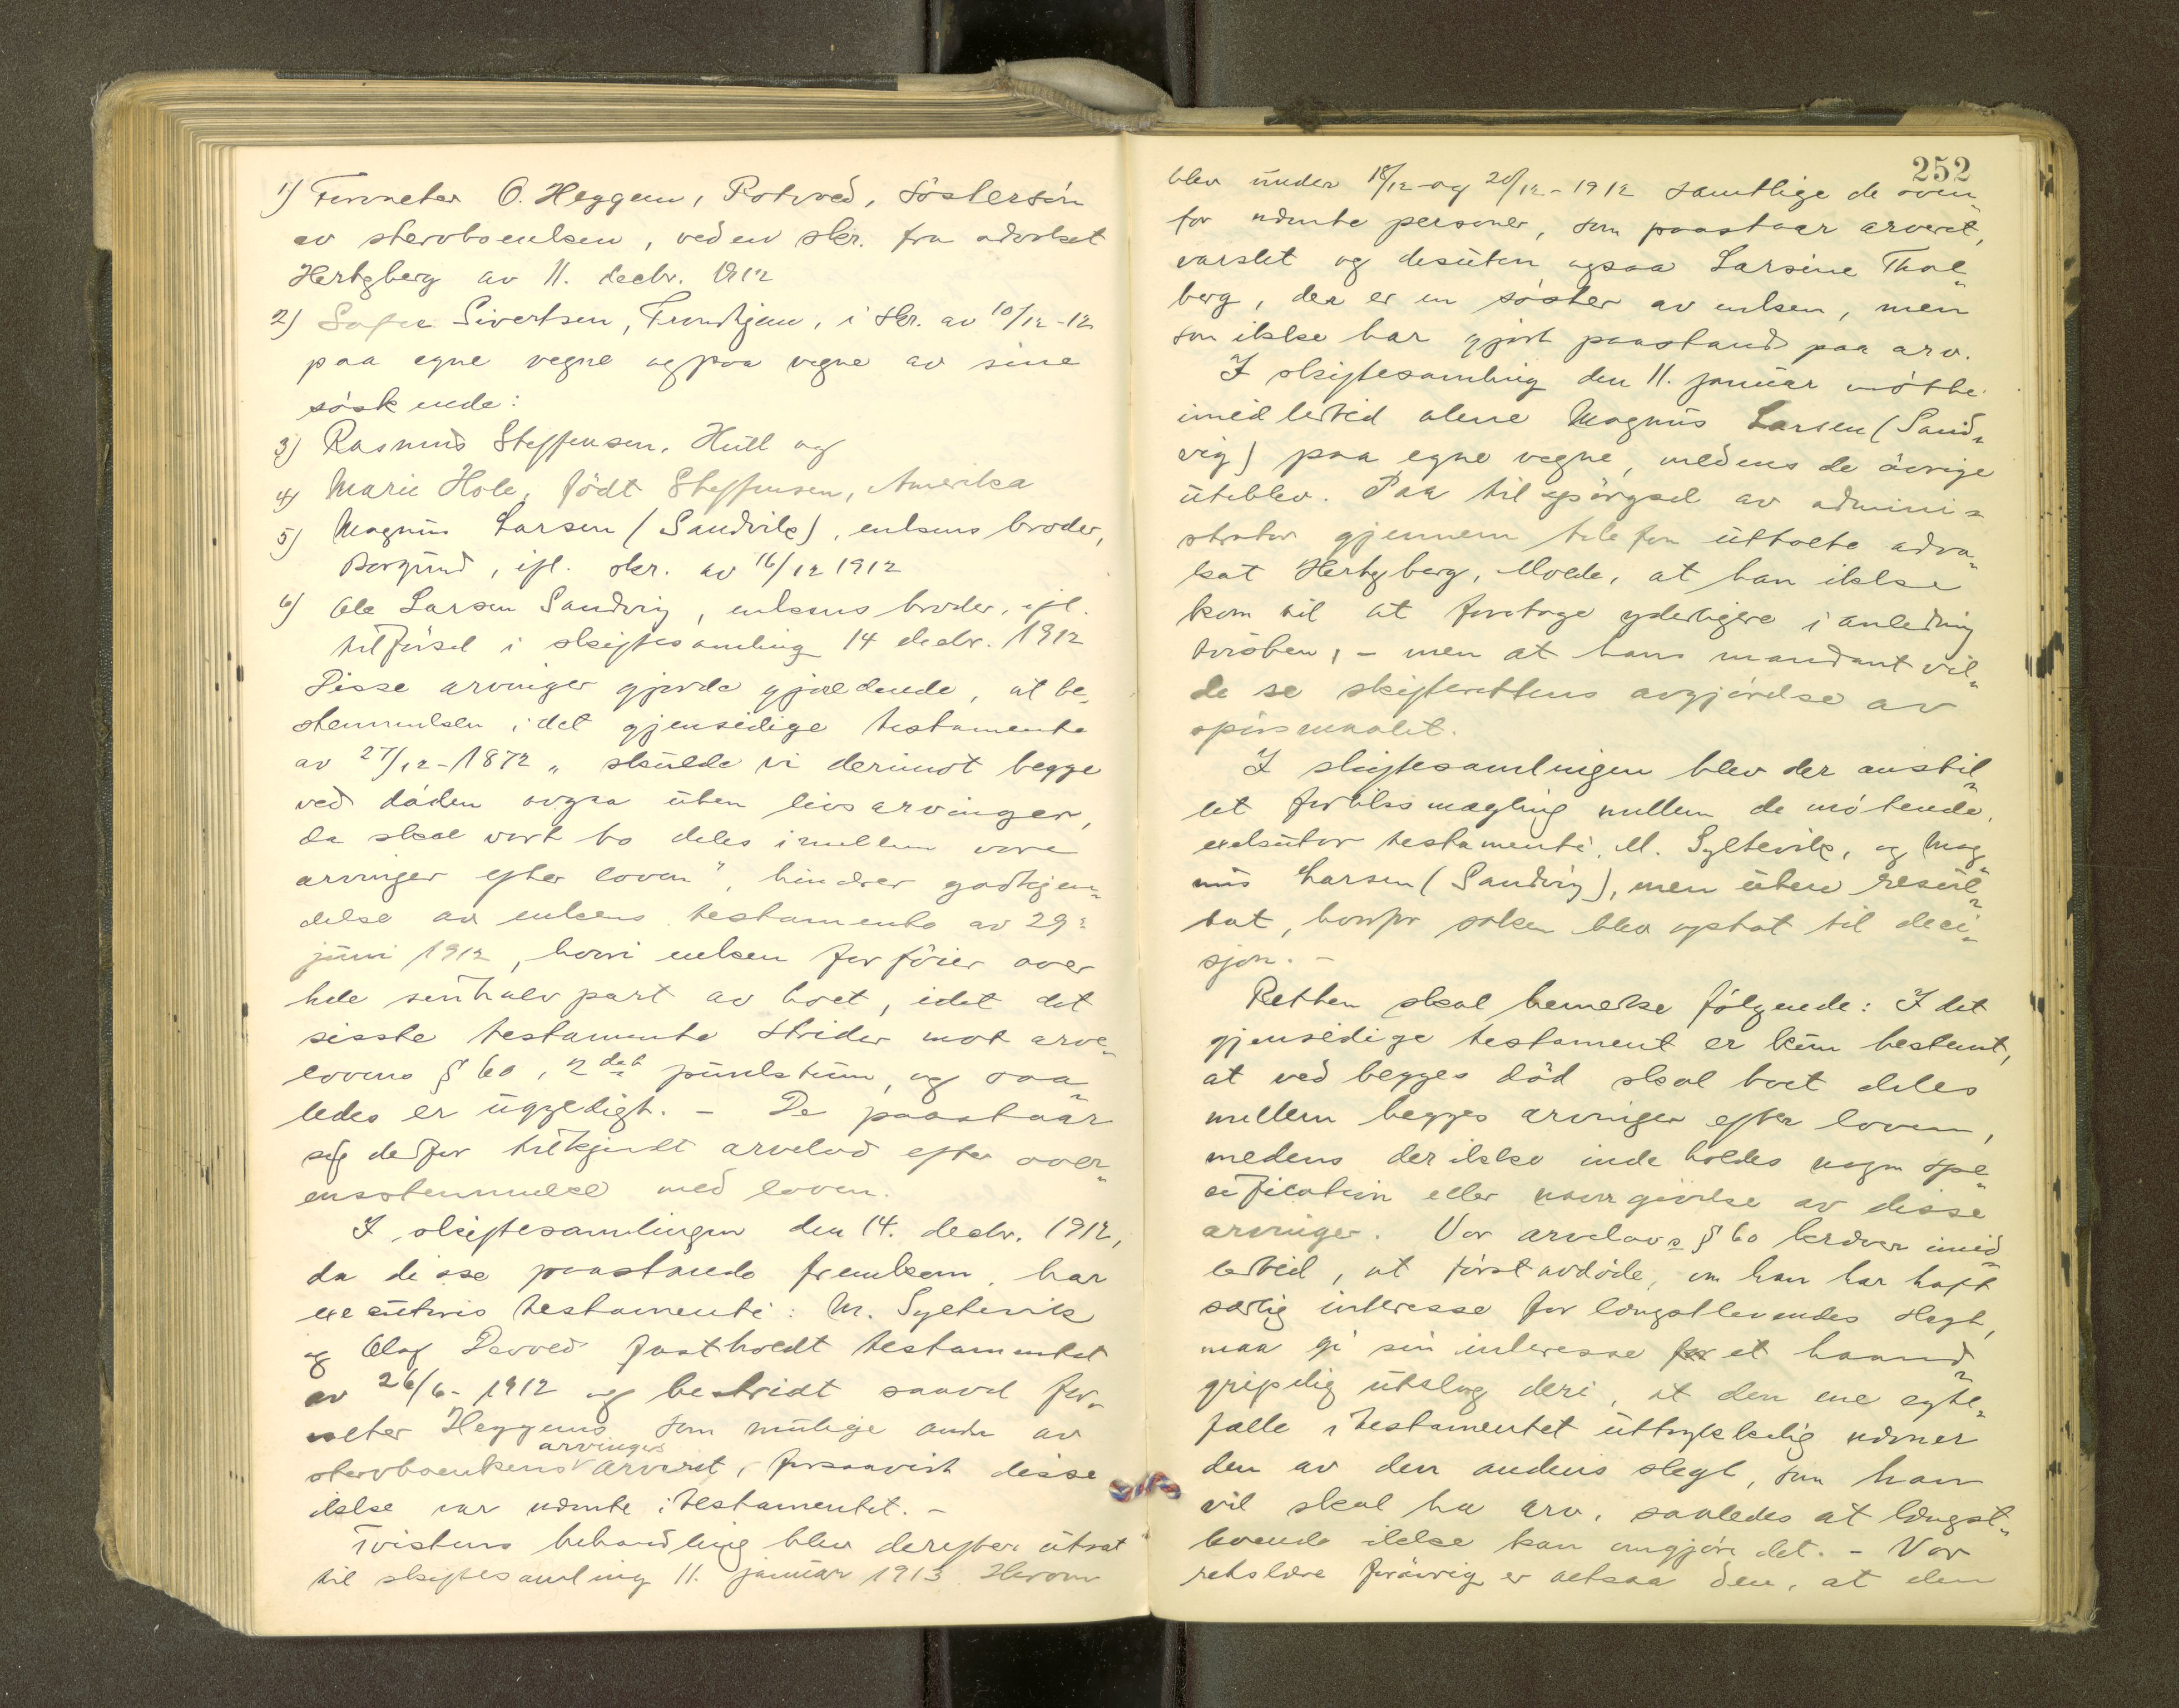 1) Furunetes O. Heggem, Rotved, söstersön
av stervboenken, ved en skr. fra advokat
Hertzberg av 11. decbr. 1912
2) Sofie Sivertsen, Trondhjem, i skr. av 10/12-12
paa egne vegne og paa vegne av sine
söskende:
3) Rasmus Steffensen, Hull og
4) Marie Hole, födt Steffensen, Amerika
5) Magnus Larsen (Sandvik), enkens broder,
Borgund, ifl. skr. av 16/12 1912
6) Ole Larsen Sandvig, enkens broder, ifl.
tilförsel i skiftesamling 14 decbr. 1912
Disse arvinger gjorde gjældende, at be„
stemmelsen i det gjensidige testamente
av 27/12-1872 „ skulde vi derimot begge
ved döden avgaa uten livsarvinger,
da skal vort bo deles imellem vore
arvinger efter loven", hindrer godkjen„
delse av enkens testamente av 29:
juni 1912, hvori enken forföier over
hele sin halvpart av boet, idet det
sisste testamente strider mot arve„
lovens § 60, 2det punktum, og saa„
ledes er ugyldigt. – De paastaar
sig derfor tilkjendt arvelod efter over„
ensstemmelse med loven.
I skiftesamlingen den 14. decbr. 1912,
da disse paastande fremkom, har
executores testamenti: M. Syltevik
og Olaf Devoed fastholdt testamentet
av 26/6-1912 og bestridt saavel for„
neter Heggems som mulige andre av
stervboenkens arvinges arveret, forsaavidt disse
ikke var nævnte i testamentet. –
Tvistens behandling blev derefter utsat
til skiftesamling 11. januar 1913. Herom
252
blev under 18/12 og 20/12-1912 samtlige de oven„
for nævnte personer, som paastaar arveret,
varslet og desuten ogsaa Larsine Thal„
berg, der er en söster av enken, men
som ikke har gjort paastand paa arv.
I skiftesamling den 11. januar mötte
imidlertid alene Magnus Larsen (Sand„
vig) paa egne vegne, medens de övrige
uteblev. Paa tilspörgsel av admini„
strator gjennem telefon uttalte advo„
kat Hertzberg, Molde, at han ikke
kom til at foretage yderligere i anledning
tvisten, – men at hans mandant vil„
de se skifterettens avgjörelse av
spörsmaalet.
I skiftesamlingen blev der anstil„
let forliksmægling mellem de mötende,
exekutor testamenti, M. Syltevik, og Mag„
nus Larsen (Sandvig), men uten resul„
tat, hvorfor saken blev optat til deci„
sjon. –
Retten skal bemerke fölgende: I det
gjensidige testament er kun bestemt,
at ved begges död skal boet deles
mellem begges arvinger efter loven,
medens der ikke inde holdes nogen spe„
cification eller navngivelse av disse
arvinger. Vor arvelovs § 60 kræver imid„
lertid, at först avdöde, om han har hatt
særlig interesse for længstlevendes slegt,
maa gi sin interesse et haand„
gripelig utslag deri, at den ene egte„
fælle i testamentet uttrykkelig nævner
den av den andens slegt, som han
vil skal ha arv, saaledes at længst„
levende ikke kan omgjöre det. – Vor
retslære forövrig er altsaa den, at den